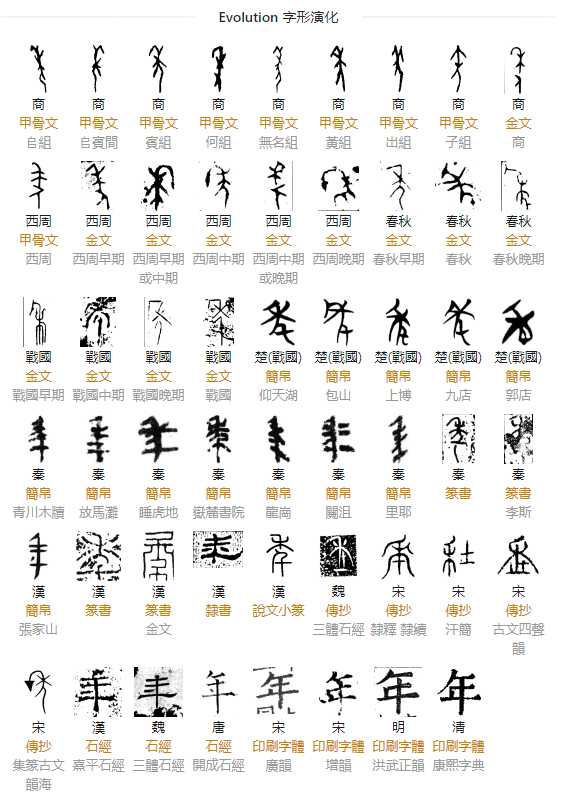 Evolution 字形演化
商 商 商 商 商 商 商 商 商
甲骨文 甲骨文 甲骨文 甲骨文 甲骨文 甲骨文 甲骨文 甲骨文 金文
𠂤組 𠂤賓間 賓組 何組 無名組 黃組 出組 子組 商
西周 西周 西周 西周 西周 西周 春秋 春秋 春秋
甲骨文 金文 金文 金文 金文 金文 金文 金文 金文
西周 西周早期 西周早期 西周中期 西周中期 西周晚期 春秋早期 春秋 春秋晚期
或中期 或晚期
戰國 戰國 戰國 戰國 楚(戰國) 楚(戰國) 楚(戰國) 楚(戰國) 楚(戰國)
金文 金文 金文 金文 簡帛 簡帛 簡帛 簡帛 簡帛
戰國早期 戰國中期 戰國晚期 戰國 仰天湖 包山 上博 九店 郭店
秦 秦 秦 秦 秦 秦 秦 秦 秦
簡帛 簡帛 簡帛 簡帛 簡帛 簡帛 簡帛 篆書 篆書
青川木牘 放馬灘 睡虎地 嶽麓書院 龍崗 關沮 里耶 李斯
漢 漢 漢 漢 漢 魏 宋 宋 宋
簡帛 篆書 篆書 隸書 說文小篆 傳抄 傳抄 傳抄 傳抄
張家山 金文 三體石經 隸釋 隸續 汗簡 古文四聲
韻
年 年 年 年 年 年 年
宋 漢 魏 唐 宋 宋 明 清
傳抄 石經 石經 石經 印刷字體 印刷字體 印刷字體 印刷字體
集篆古文 熹平石經 三體石經 開成石經 廣韻 增韻 洪武正韻 康熙字典
韻海